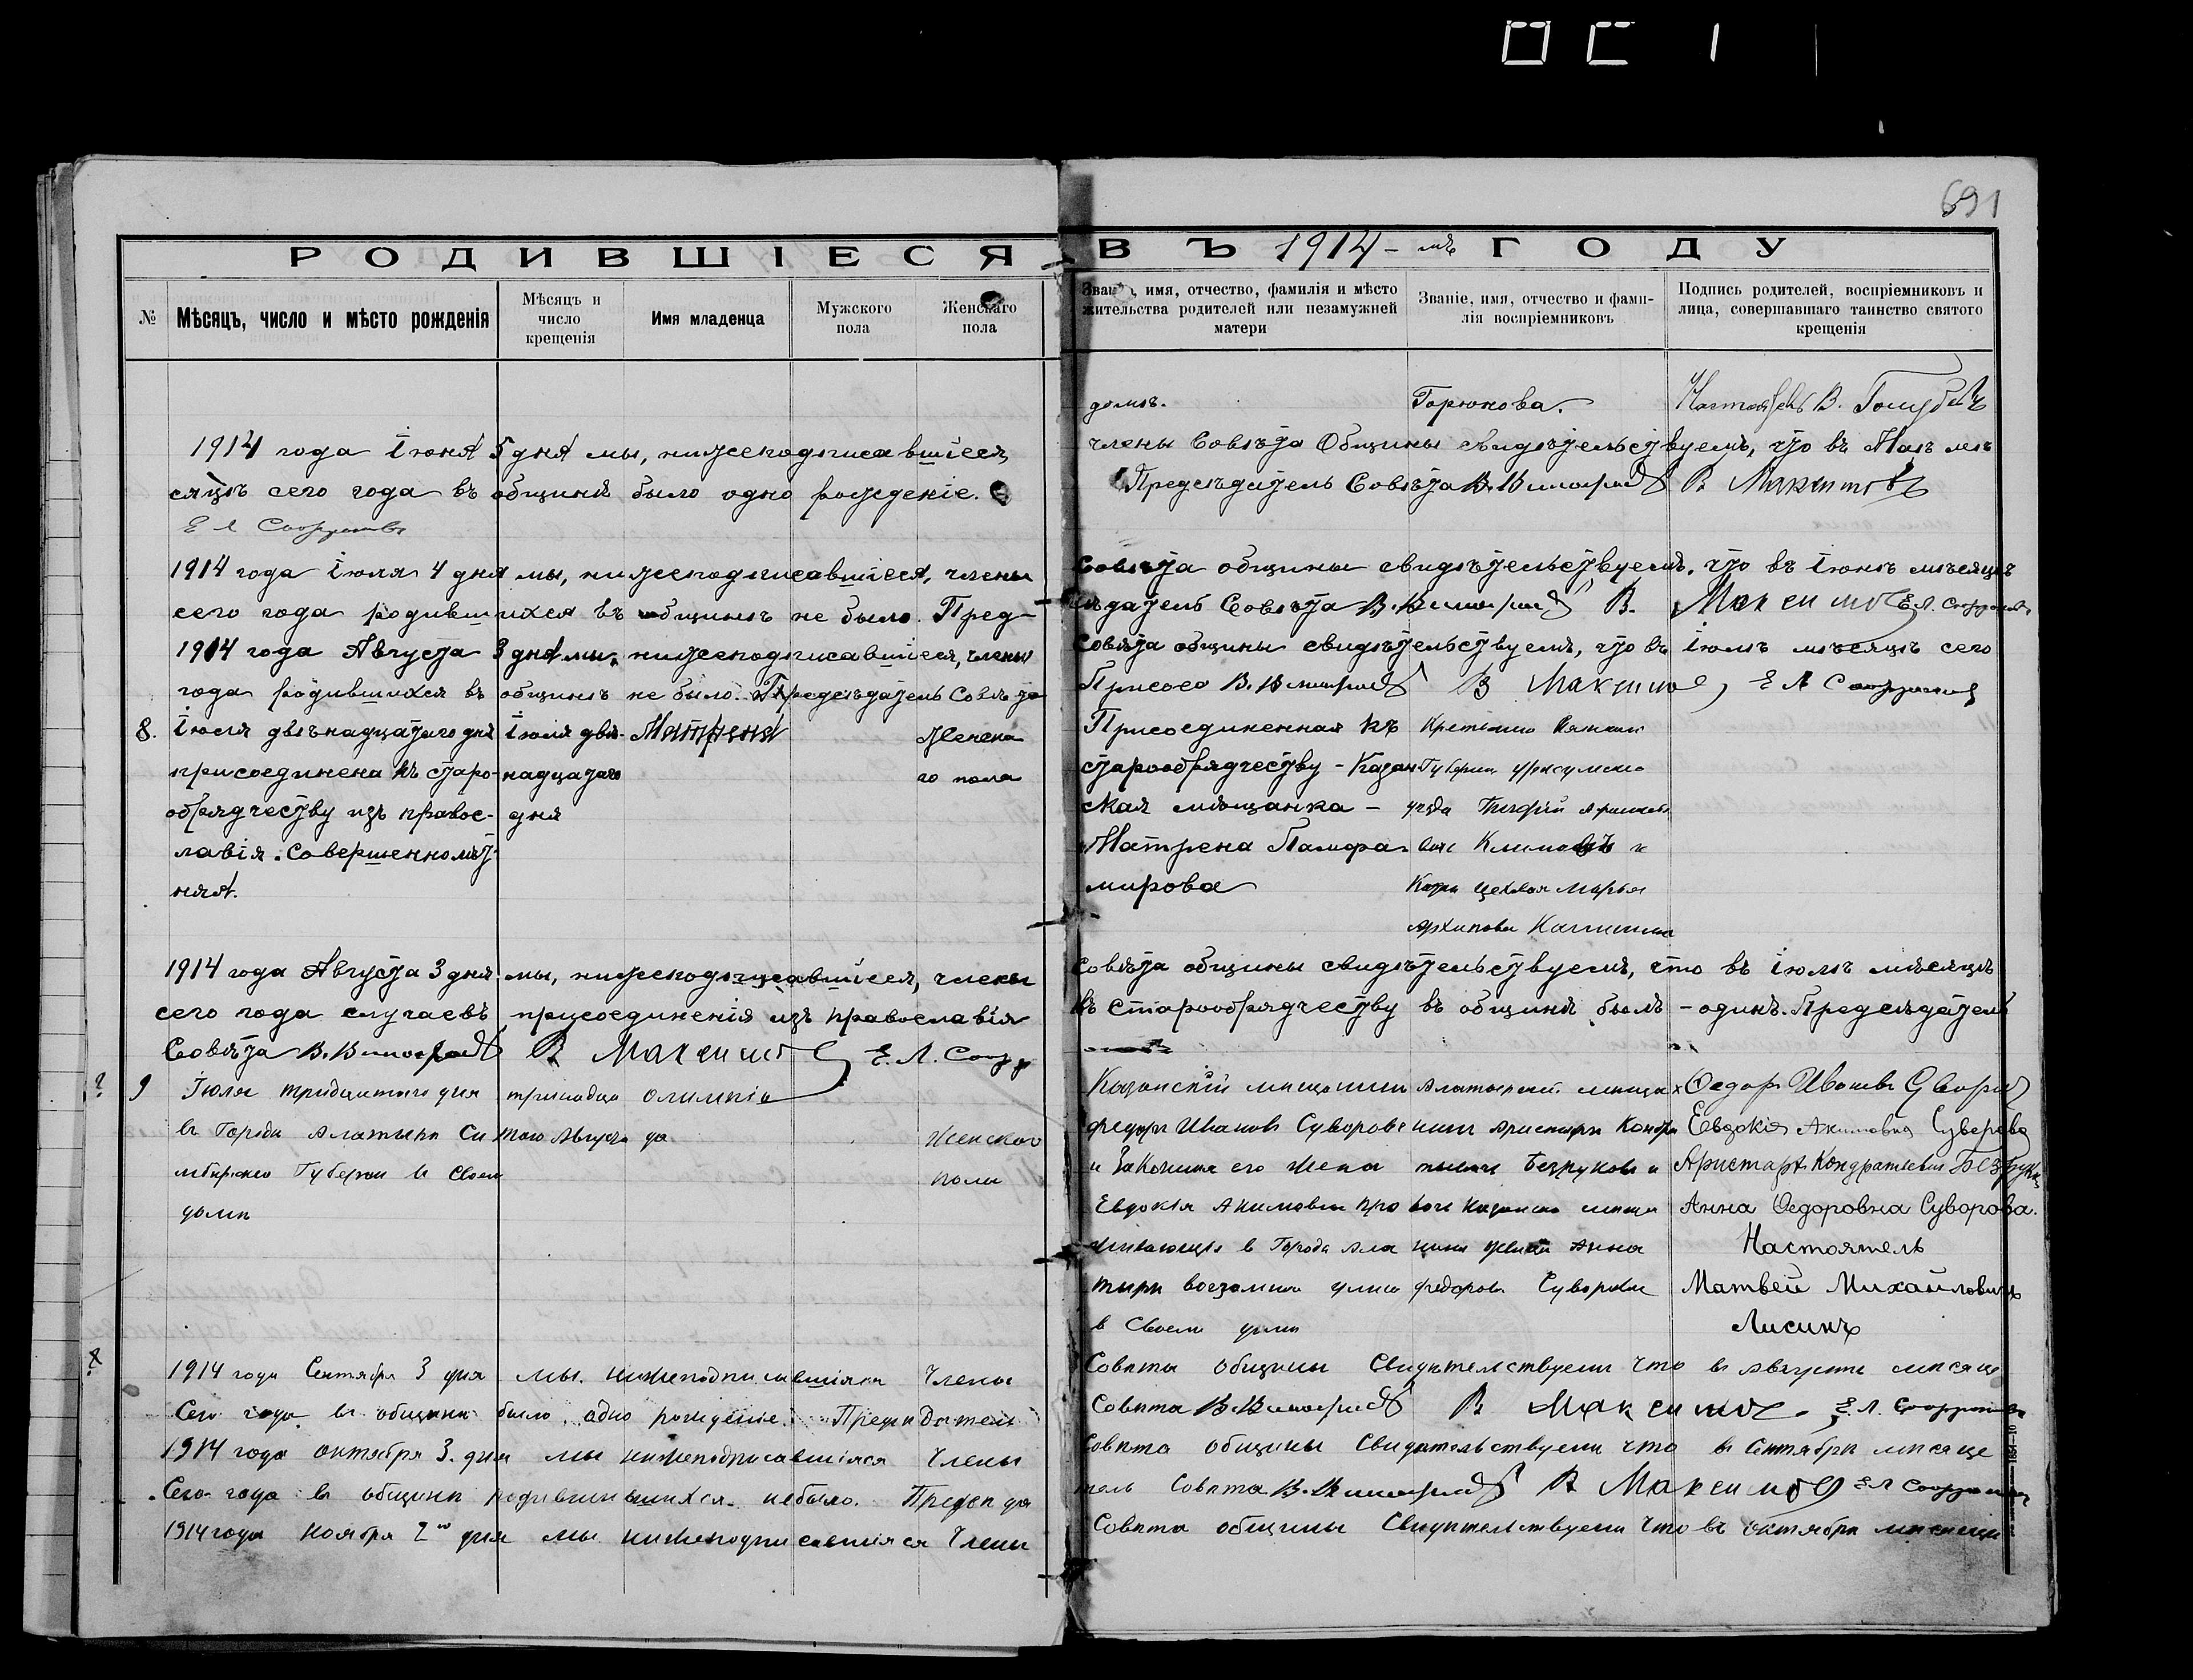 691
РОДИВШІЕСЯ ВЪ 1914-мъ ГОДУ
№
Мѣсяцъ, число и мѣсто рожденія
Мѣсяцъ и число крещенія
Имя младенца
Мужского пола
Женскаго пола
Званіе, имя, отчество, фамилія и мѣсто жительства родителей или незамужней матери
Званіе, имя, отчество и фамилія воспріемниковъ
Подпись родителей, воспріемниковъ и лица, совершавшаго таинство святого крещенія
домъ. Горюнова. В.
1914 года Іюня 5 дня мы, нижеподписавшіеся, члены Совѣта Общины свидѣтельствуемъ, что въ Маѣ мѣ
сяцѣ сего года въ общинѣ было одно рожденіе. Предсѣдатель Совѣта В. В. Максимовъ
Е Л
1914 года Іюля 4 дня мы, нижеподписавшіеся, члены Совѣта общины свидѣтельствуемъ, что въ Іюнѣ мѣсяцѣ
сего года родившихся въ общинѣ не было. Предсѣдатель Совѣта В. В. Максимов Е. Л.
1914 года Августа 3 дня мы, нижеподписавшіеся, члены Совѣта общины свидѣтельствуемъ, что въ Іюлѣ мѣсяцѣ сего
года родившихся въ общинѣ не было. Предсѣдатель Совѣта В. В Максимов, Е Л
8.
Іюля двѣнадцатаго дня
присоединена къ старо-
обрядчеству изъ правос-
лавія. Совершеннолѣт
няя.
Іюля двѣ-
надцатаго
дня
Матрена
Женска
го пола
Присоединенная къ
старообрядчеству - Казан
ская мѣщанка -
Матрена Памфа
мирова
Губерніи
уезда
Климовъ и
цеховая Марья
Архипова
1914 года Августа 3 дня мы, нижеподписавшіеся, члены Совѣта общины свидѣтельствуемъ, что въ Іюлѣ мѣсяцѣ
сего года случаевъ присоединенія изъ православія къ старообрядчеству въ общинѣ былъ - одинъ. Предсѣдатель
Совѣта В. В Максимов Е. Л.
? 9
Іюля тридцатаго дня
въ Городи Алатыри Си
мбирско Губерніи в Своем
доми
тринадца
таго Августа
Олимпіа
да
Женского
пола
Казанскій мищанин
Федоръ Иванов Суворов
и Законная его Жена
Евдокія Акимовна про
живающи в Города Ала
тыри вокзалная улица
в Своем доми
Алатырскій мища
нин Аристарх Кондра
Безруков и
мища
Анна
Федорова Суворова
Ѳедоръ Ивановъ Суворов
Евдокія Акимовна Суверова
Аристархъ Кондратьевич Безруков
Анна Ѳедоровна Суворова.
Настоятель
Матвей Михайловичъ
Лисинъ
1914 года Сентября 3 дня мы нижеподписавшіяся Члены Совита общины Свидителствуем что в Августи мисяце
Сего года в общини было одно рожденіе. Предсидатель Совита В. В Максимов. Е. Л.
1914 года октября 3. дня мы нижеподписавшіяся Члены Совита общины Свидительствуем что в Сентябри мисяце
Сего года в общини родившихся небыло. Предсидатель Совита В. В Максимов Е Л
1914 года Ноября 2го дня мы нижеподписавшіяся Члены Совита общины Свидителствуем что въ октябри мисяци